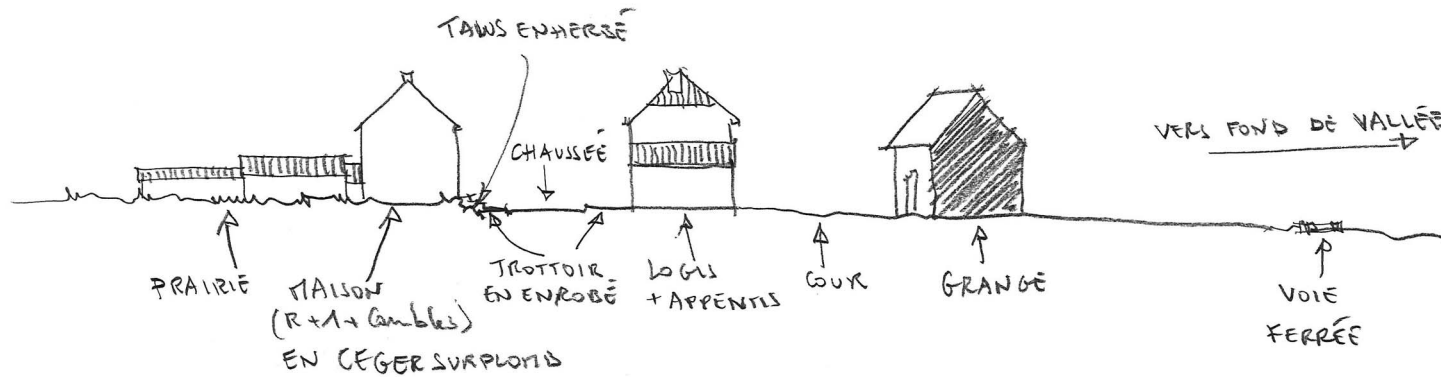 TALUS ENHERBÉ
CHAUSSÉÉ
VERS FOND DE VALLÉÉ
PRAIRIÉ
MAISON
(R+1+Combles)
EN LÉGER SURPLOMB
TROTTOIR
EN ENROBÉ
LOGIS
+ APPENTIS
COUR
GRANGÉ
VOIÉ
FERRÉÉ